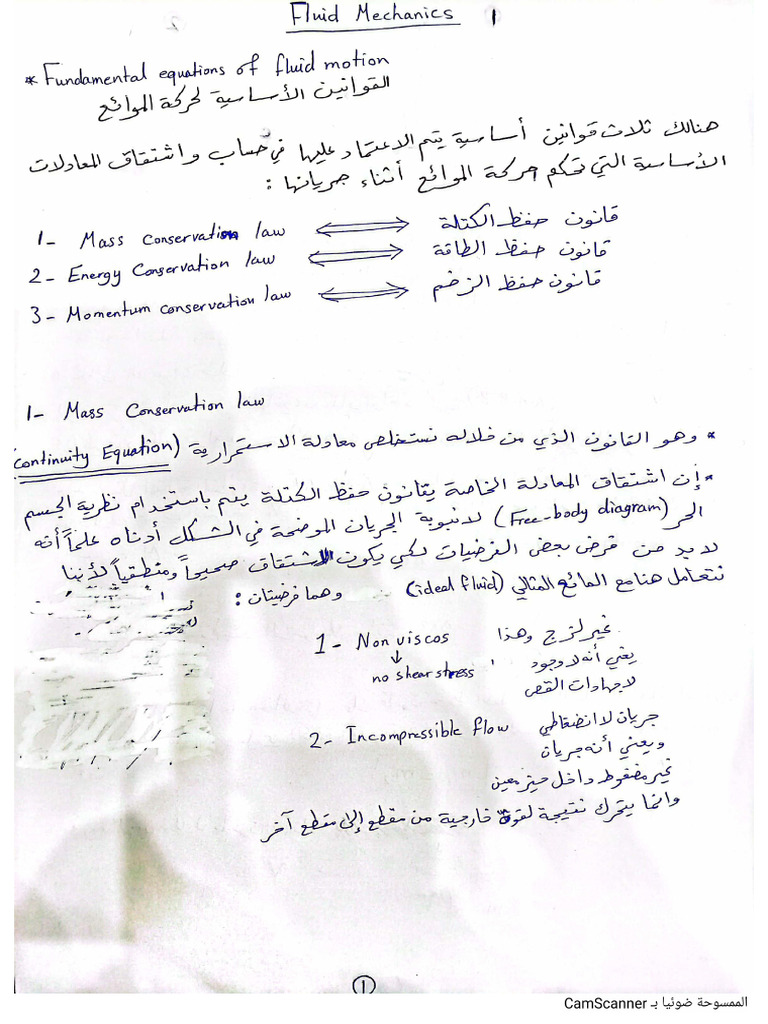 Fluid Mechanics 1
* Fundamental equations of fluid motion
القوانين الأساسية لحركة الموائع
هنالك ثلاث قوانين أساسية يتم الاعتماد عليها في حساب واشتقاق المعادلات
الأساسية التي تحكم حركة الموائع أثناء جريانها :
1- Mass Conservation law ⟺ قانون حفظ الكتلة
2- Energy Conservation law ⟺ قانون حفظ الطاقة
3- Momentum conservation law ⟺ قانون حفظ الزخم
1- Mass Conservation law
* وهو القانون الذي من خلاله نستخلص معادلة الاستمرارية (Continuity Equation)
* إن اشتقاق المعادلة الخاصة بقانون حفظ الكتلة يتم باستخدام نظرية الجسم
الحر (Free-body diagram) لانبوبة الجريان الموضحة في الشكل أدناه علماً أنه
لا بد من فرض بعض الفرضيات لكي يكون الاشتقاق صحيحاً ومنطقياً لأننا
نتعامل هنا مع المائع المثالي (ideal fluid) وهما فرضيتان :
1- Non viscos غير لزج وهذا
↓ يعني أنه لا وجود
no shear stress لاجهادات القص
2- Incompressible flow جريان لا انضغاطي
ويعني أنه جريان
غير مضغوط داخل حيز معين
وانما يتحرك نتيجة لقوة خارجية من مقطع إلى مقطع آخر
1
الممسوحة ضوئيا بـ CamScanner